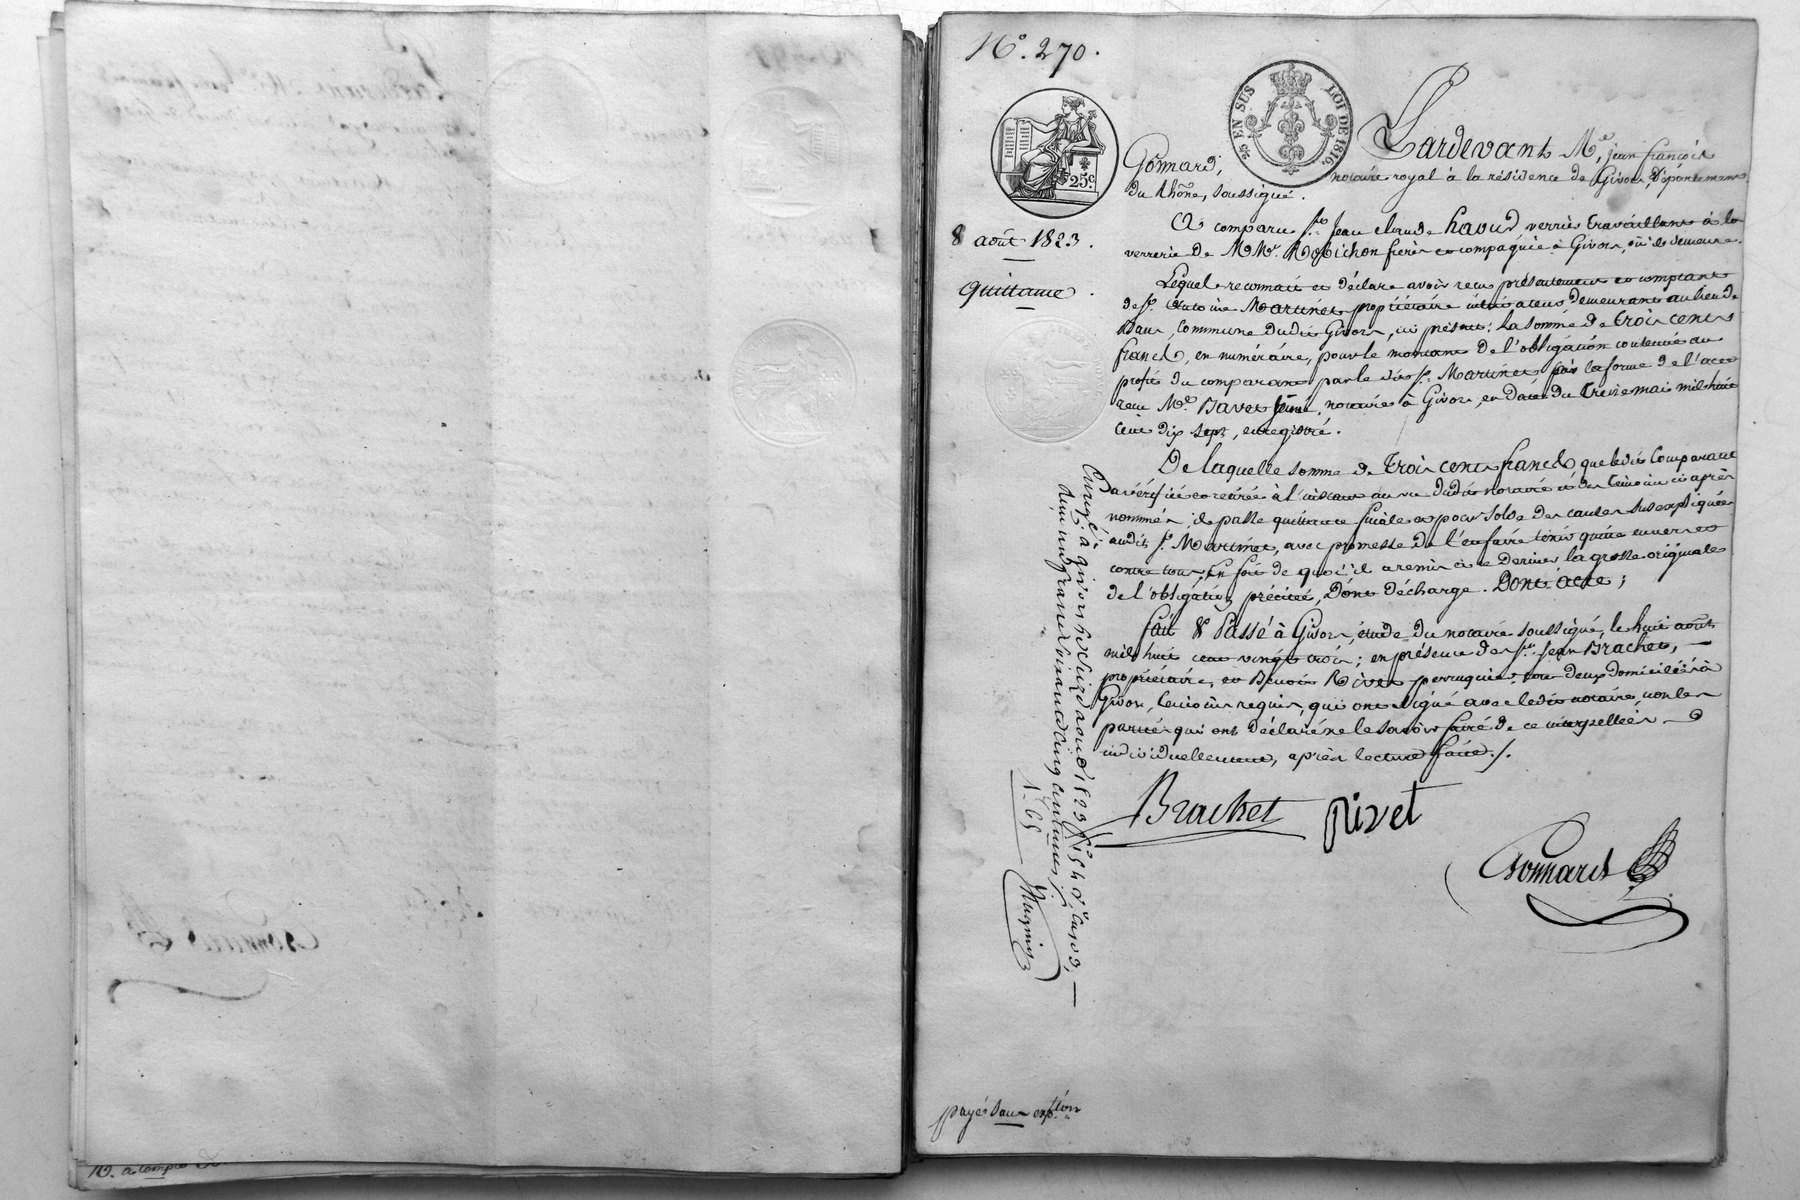 N.º 270.
25 EN SUS LOI DE 1816.
25c.
8 août 1823.
quittance.
Pardevant M.e jean françois
Gonnard, notaire royal à la résidence de Givors, département
du Rhône, soussigné.
A comparu s.r Jean claude haour verrier travaillant à la
verrerie de M.M.rs Robichon freres et compagnie à Givors, où il demeure.
Lequel reconnait et déclare avoir reçu présentement et comptant
de s.r Antoine Martinet propriétaire cultivateur demeurant au lieu de
Bans, Commune dudit Givors, ici présent: la somme de trois cents
francs, en numéraire, pour le montant de l'obligation contenue au
profit du comparant par le dit s.r Martinet par la forme de l'acte
reçu M.e notaire à Givors, en date du treize mai mil huit
cent dix sept, enregistré.
De laquelle somme de trois cents francs que ledit Comparant
a vérifiée et retirée à l'instant au vu dudit notaire et des témoins ci après
nommés; il passe quittance finale et pour solde des causes susexpliquées
audit s.r Martinet, avec promesse de l'en faire tenir quitte envers et
contre tous, En foi de quoi il a remis à ce dernier la grosse originale
de l'obligation précitée, Dont décharge. Dont acte;
fait & Passé à Givors, étude du notaire soussigné, le huit août
mil huit cent vingt trois; en présence de s.rs Jean Brachet,
propriétaire, et Benoit Rivet perruquier, tous deux domiciliés à
Givors, témoins requis, qui ont signé avec ledit notaire, non les
parties qui ont déclaré ne le savoir faire de ce interpellées
individuellement, après lecture faite./.
Brachet Rivet
Gonnard
Enreg.é à givors le seize aout 1823 f.o 154 r.o case 3,
reçu un franc cinquante cinq centimes,
1.65
payé sauf exp.tion
10. a compte